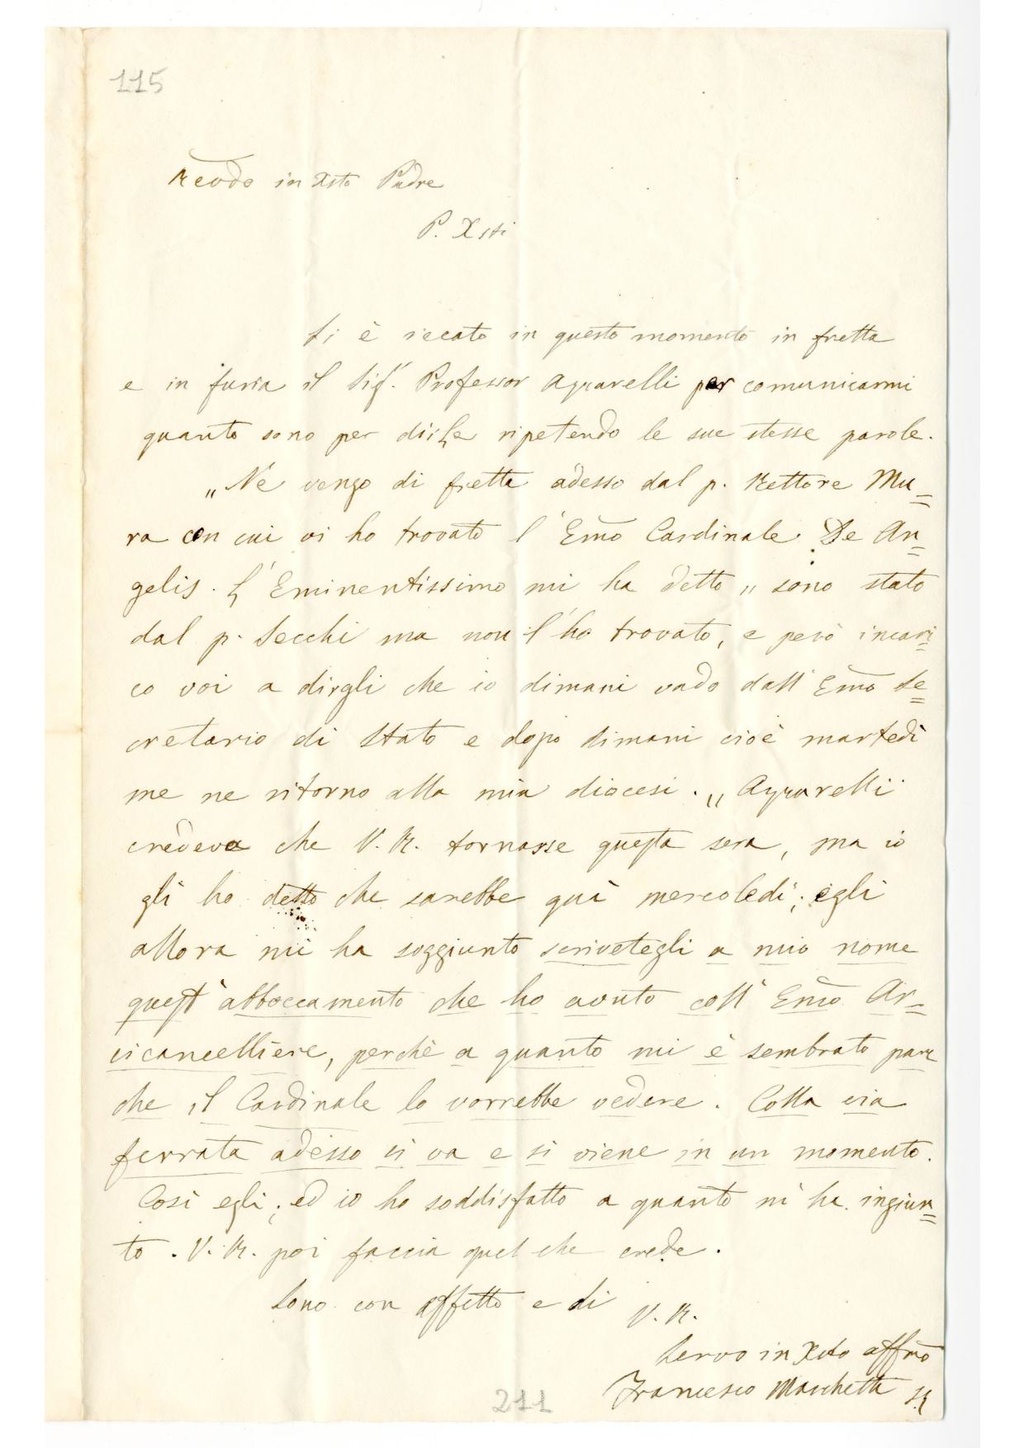 115
Revdo in Xsto Padre
P. Xsti
Si è recato in questo momento in fretta
e in furia il Sigr. Professor Agnarelli per comunicarmi
quanto sono per dirle ripetendo le sue stesse parole.
„ Ne vengo di fretta adesso dal p. Rettore Mu=
ra con cui vi ho trovato l' Emo Cardinale De An=
gelis. L' Eminentissimo mi ha detto „ sono stato
dal p. Secchi ma non l' ho trovato, e però incari=
co voi a dirgli che io dimani vado dall' Emo Se=
cretario di Stato e dopo dimani cioè martedì
me ne ritorno alla mia diocesi. „ Agnarelli
credeva che V. R. tornasse questa sera, ma io
gli ho detto che sarebbe quì mercoledì; egli
allora mi ha soggiunto scrivetegli a mio nome
quest' abboccamento che ho avuto coll' Emo Ar=
cicancelliere, perchè a quanto mi è sembrato pare
che il Cardinale lo vorrebbe vedere. Colla via
ferrata adesso si va e si viene in un momento.
Così egli; ed io ho soddisfatto a quanto mi ha ingiun=
to. V. R. poi faccia quel che crede.
Sono con affetto e di V. R.
Servo in Xsto affmo
Francesco Marchetti
211